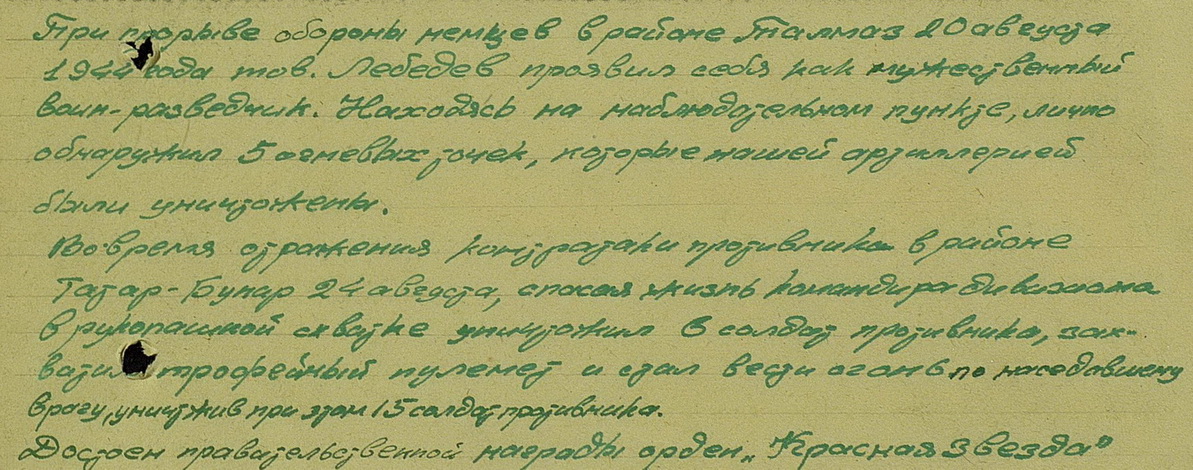 При прорыве обороны немцев в районе Талмаз 20 августа
1944 года тов. Лебедев проявил себя как мужественный
воин-разведчик. Находясь на наблюдательном пункте, лично
обнаружил 5 огневых точек, которые нашей артиллерией
были уничтожены.
Во время отражения контратаки противника в районе
Татар-Бунар 24 августа, спасая жизнь командира дивизиона
в рукопашной схватке уничтожил 6 солдат противника, зах-
ватил трофейный пулемет и стал вести огонь по наседавшему
врагу, уничтжив при этом 15 солдат противника.
Достоен правательственной награды орден „Красная Звезда"